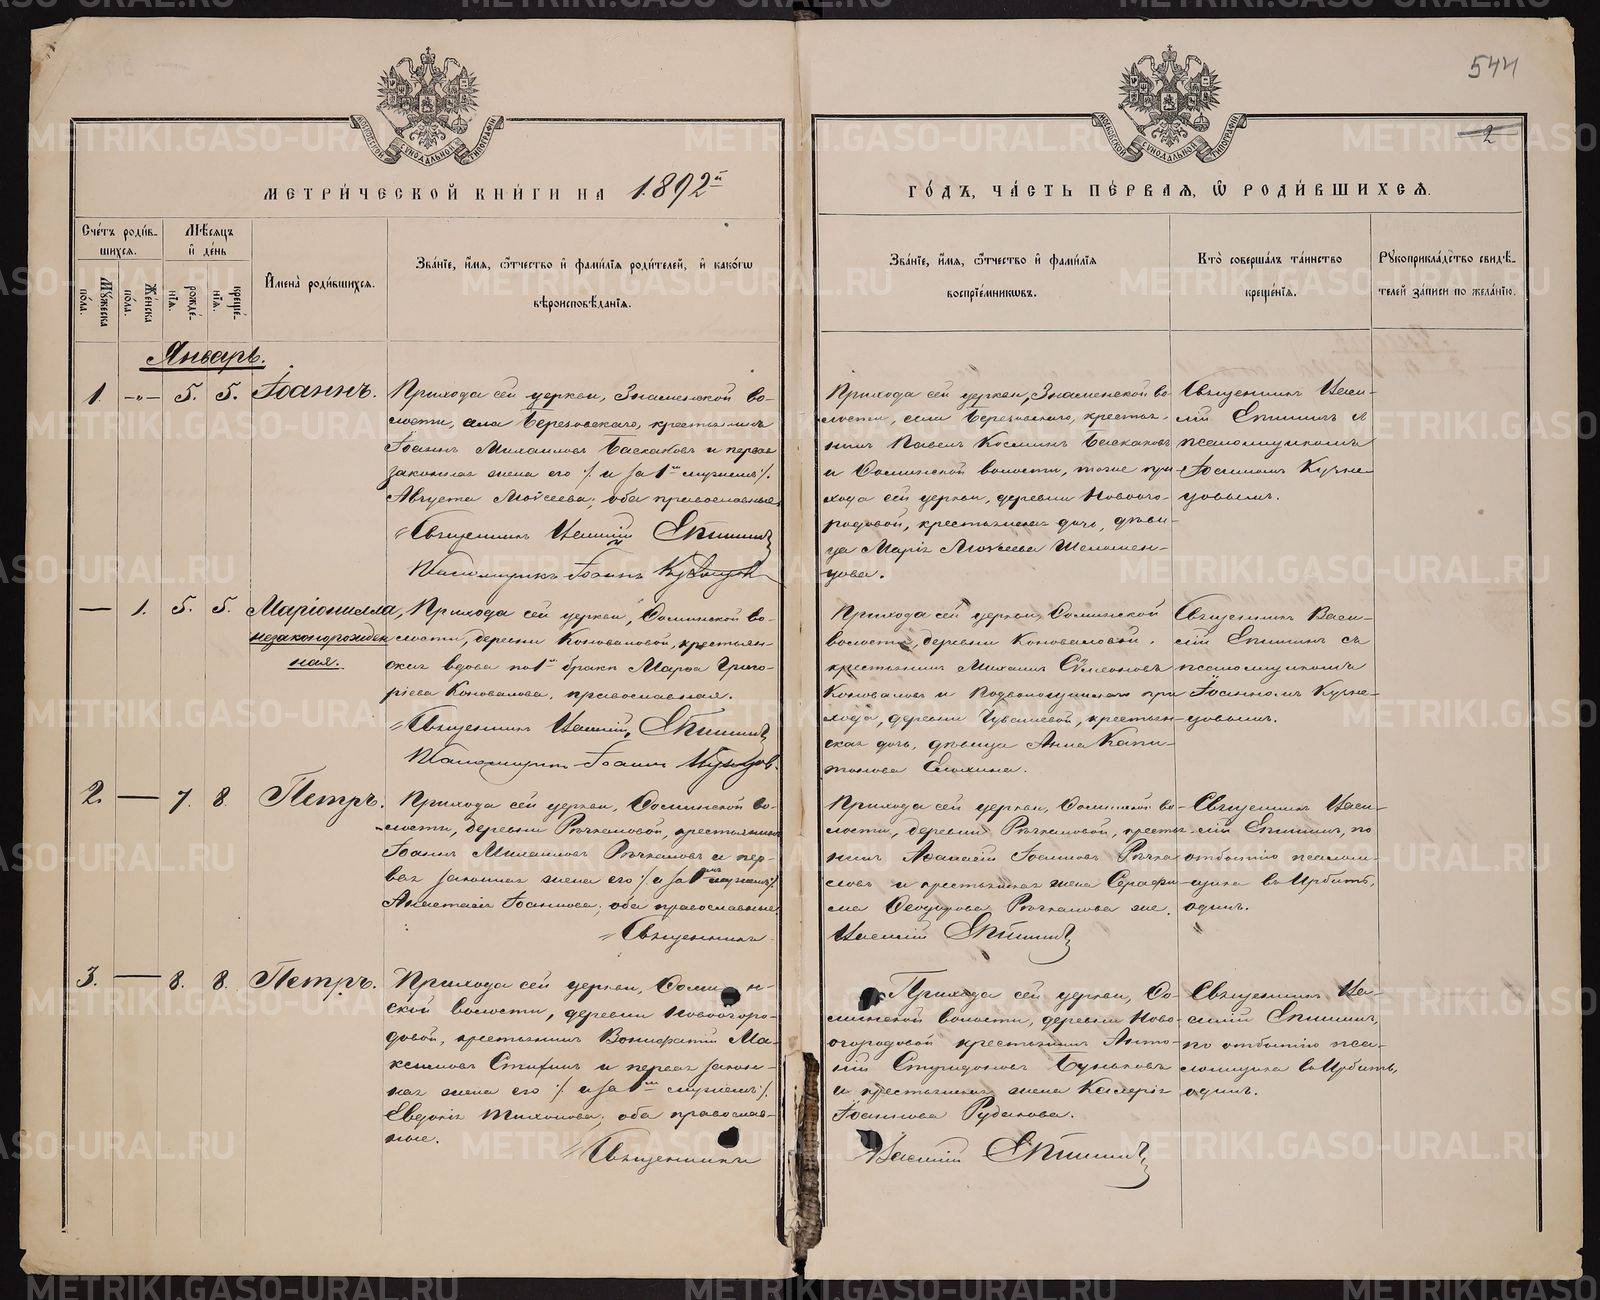 544
2
МОСКОВСКОЙ СѴНОДАЛЬНОЙ ТИПОГРАФІИ
МОСКОВСКОЙ СѴНОДАЛЬНОЙ ТИПОГРАФІИ
МЕТРИ́ЧЕСКОЙ КНИ́ГИ НА 1892й
ГО́ДЪ, ЧА́СТЬ ПЕ́РВАЯ, Ѡ РОДИ́ВШИХСЯ.
Сче́тъ роди́в-
шихся.
Мꙋ́жеска по́ла.
Же́нска по́ла.
Мѣ́сяцъ
и҆ де́нь
рожде́нїя.
креще́нїя.
И҆мена̀ роди́вшихся.
Зва́нїе, и҆́мя, ѻ҆́тчество и҆ фами́лїя роди́телей, и҆ како́гѡ
вѣроисповѣ́данїя.
Зва́нїе, и҆́мя, ѻ҆́тчество и҆ фами́лїя
воспрїе́мникѡвъ.
Кто̀ соверша́лъ та́инство
креще́нїя.
Рꙋкоприкла́дство свидѣ́-
телей за́писи по жела́нїю.
Январь.
1. -„- 5. 5. Іоаннъ.
Прихода сей церкви, Знаменской во-
лости, села Березовскаго, крестьянинъ
Іоаннъ Михаиловъ Баскаковъ и первая
законная жена его /: и за 1м мужемъ :/.
Августа Моѵсеева; оба православные
Священникъ Василій Епишинъ
Псаломщикъ Іоаннъ Кузнецовъ
Прихода сей церкви, Знаменской во-
лости, села Березовскаго, крестья-
нинъ Павелъ Космин Баскаковъ
и Соминской волости, тогоже при-
хода сей церкви, деревни Новоого-
родовой, крестьянская дочь, дѣви-
ца Марія Моѵсеева Шеломен-
цова.
Священникъ Васи-
лій Епишинъ с
псаломщикомъ
Іоанномъ Кузне-
цовымъ.
— 1. 5. 5. Маріонилла,
незаконорожден
ная.
Прихода сей церкви, Соминской во-
лости, деревни Коноваловой, крестьян-
ская вдова по 1м бракѣ Марѳа Григо-
ріева Коновалова, православная.
Священникъ Василій Епишинъ
Псаломщикъ Іоаннъ Кузнецов.
Прихода сей церкви, Соминской
волости, деревни Коноваловой,
крестьянинъ Михаилъ Сѵмеоновъ
Коноваловъ и Подволошинскаго при
хода, деревни Чувашевой, крестьян-
ская дочь, дѣвица Анна Капи-
тонова Елохина.
Священникъ Васи-
лій Епишинъ съ
псаломщикомъ
Іоанномъ Кузне-
цовымъ.
2. — 7. 8. Петръ.
Прихода сей церкви, Соминской во-
лости, деревни Рѣчкаловой, крестьянинъ
Іоаннъ Михаиловъ Рѣчкаловъ и пер-
вая законная жена его /: и за 1мъ мужемъ :/
Анастасія Іоаннова; оба православные.
Священникъ
Прихода сей церкви, Соминской во-
лости, деревни Рѣчкаловой, крестья
нинъ Аѳанасій Іоанновъ Рѣчка
ловъ и крестьянская жена Серафи-
ма Ѳеодорова Рѣчкалова же.
Василій Епишинъ
Священникъ Васи-
лій Епишинъ, по
отбытію псалом-
щика въ Ирбитъ,
одинъ.
3. — 8. 8. Петръ.
Прихода сей церкви, Соми н-
ской волости, деревни Новоогоро-
довой, крестьянинъ Вонифатій Ма-
ксимовъ Стихинъ и первая закон-
ная жена его /: и за 1мъ мужемъ :/.
Евдокія Тихонова; оба православ-
ные.
Священникъ
Прихода сей церкви, Со-
минской волости, деревни Ново-
огородовой крестьянинъ Анто-
ній Спиридоновъ Буньковъ
и крестьянская жена Калерія
Іоаннова Рудакова.
Василій Епишинъ
Священникъ Ва-
силій Епишинъ,
по отбытію пса-
ломщика въ Ирбитъ,
одинъ.
METRIKI.GASO-URAL.RU